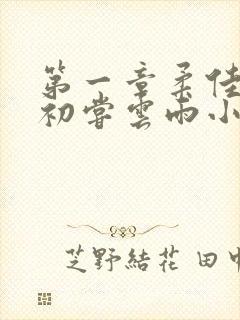 第一章柔佳
初嘗雲雨小
芝野結花 田中